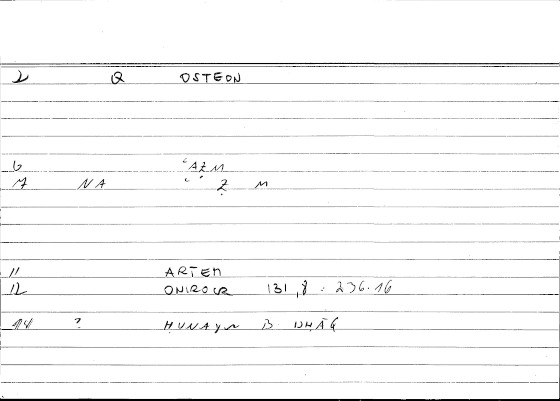 2 Q OSTEON
6 ʿAẒM
7 NA ʿ Ẓ M
11 ARTEM
12 ONIROCR 131,8 = 236.16
14 ? ḤUNAYN B ISḤĀQ